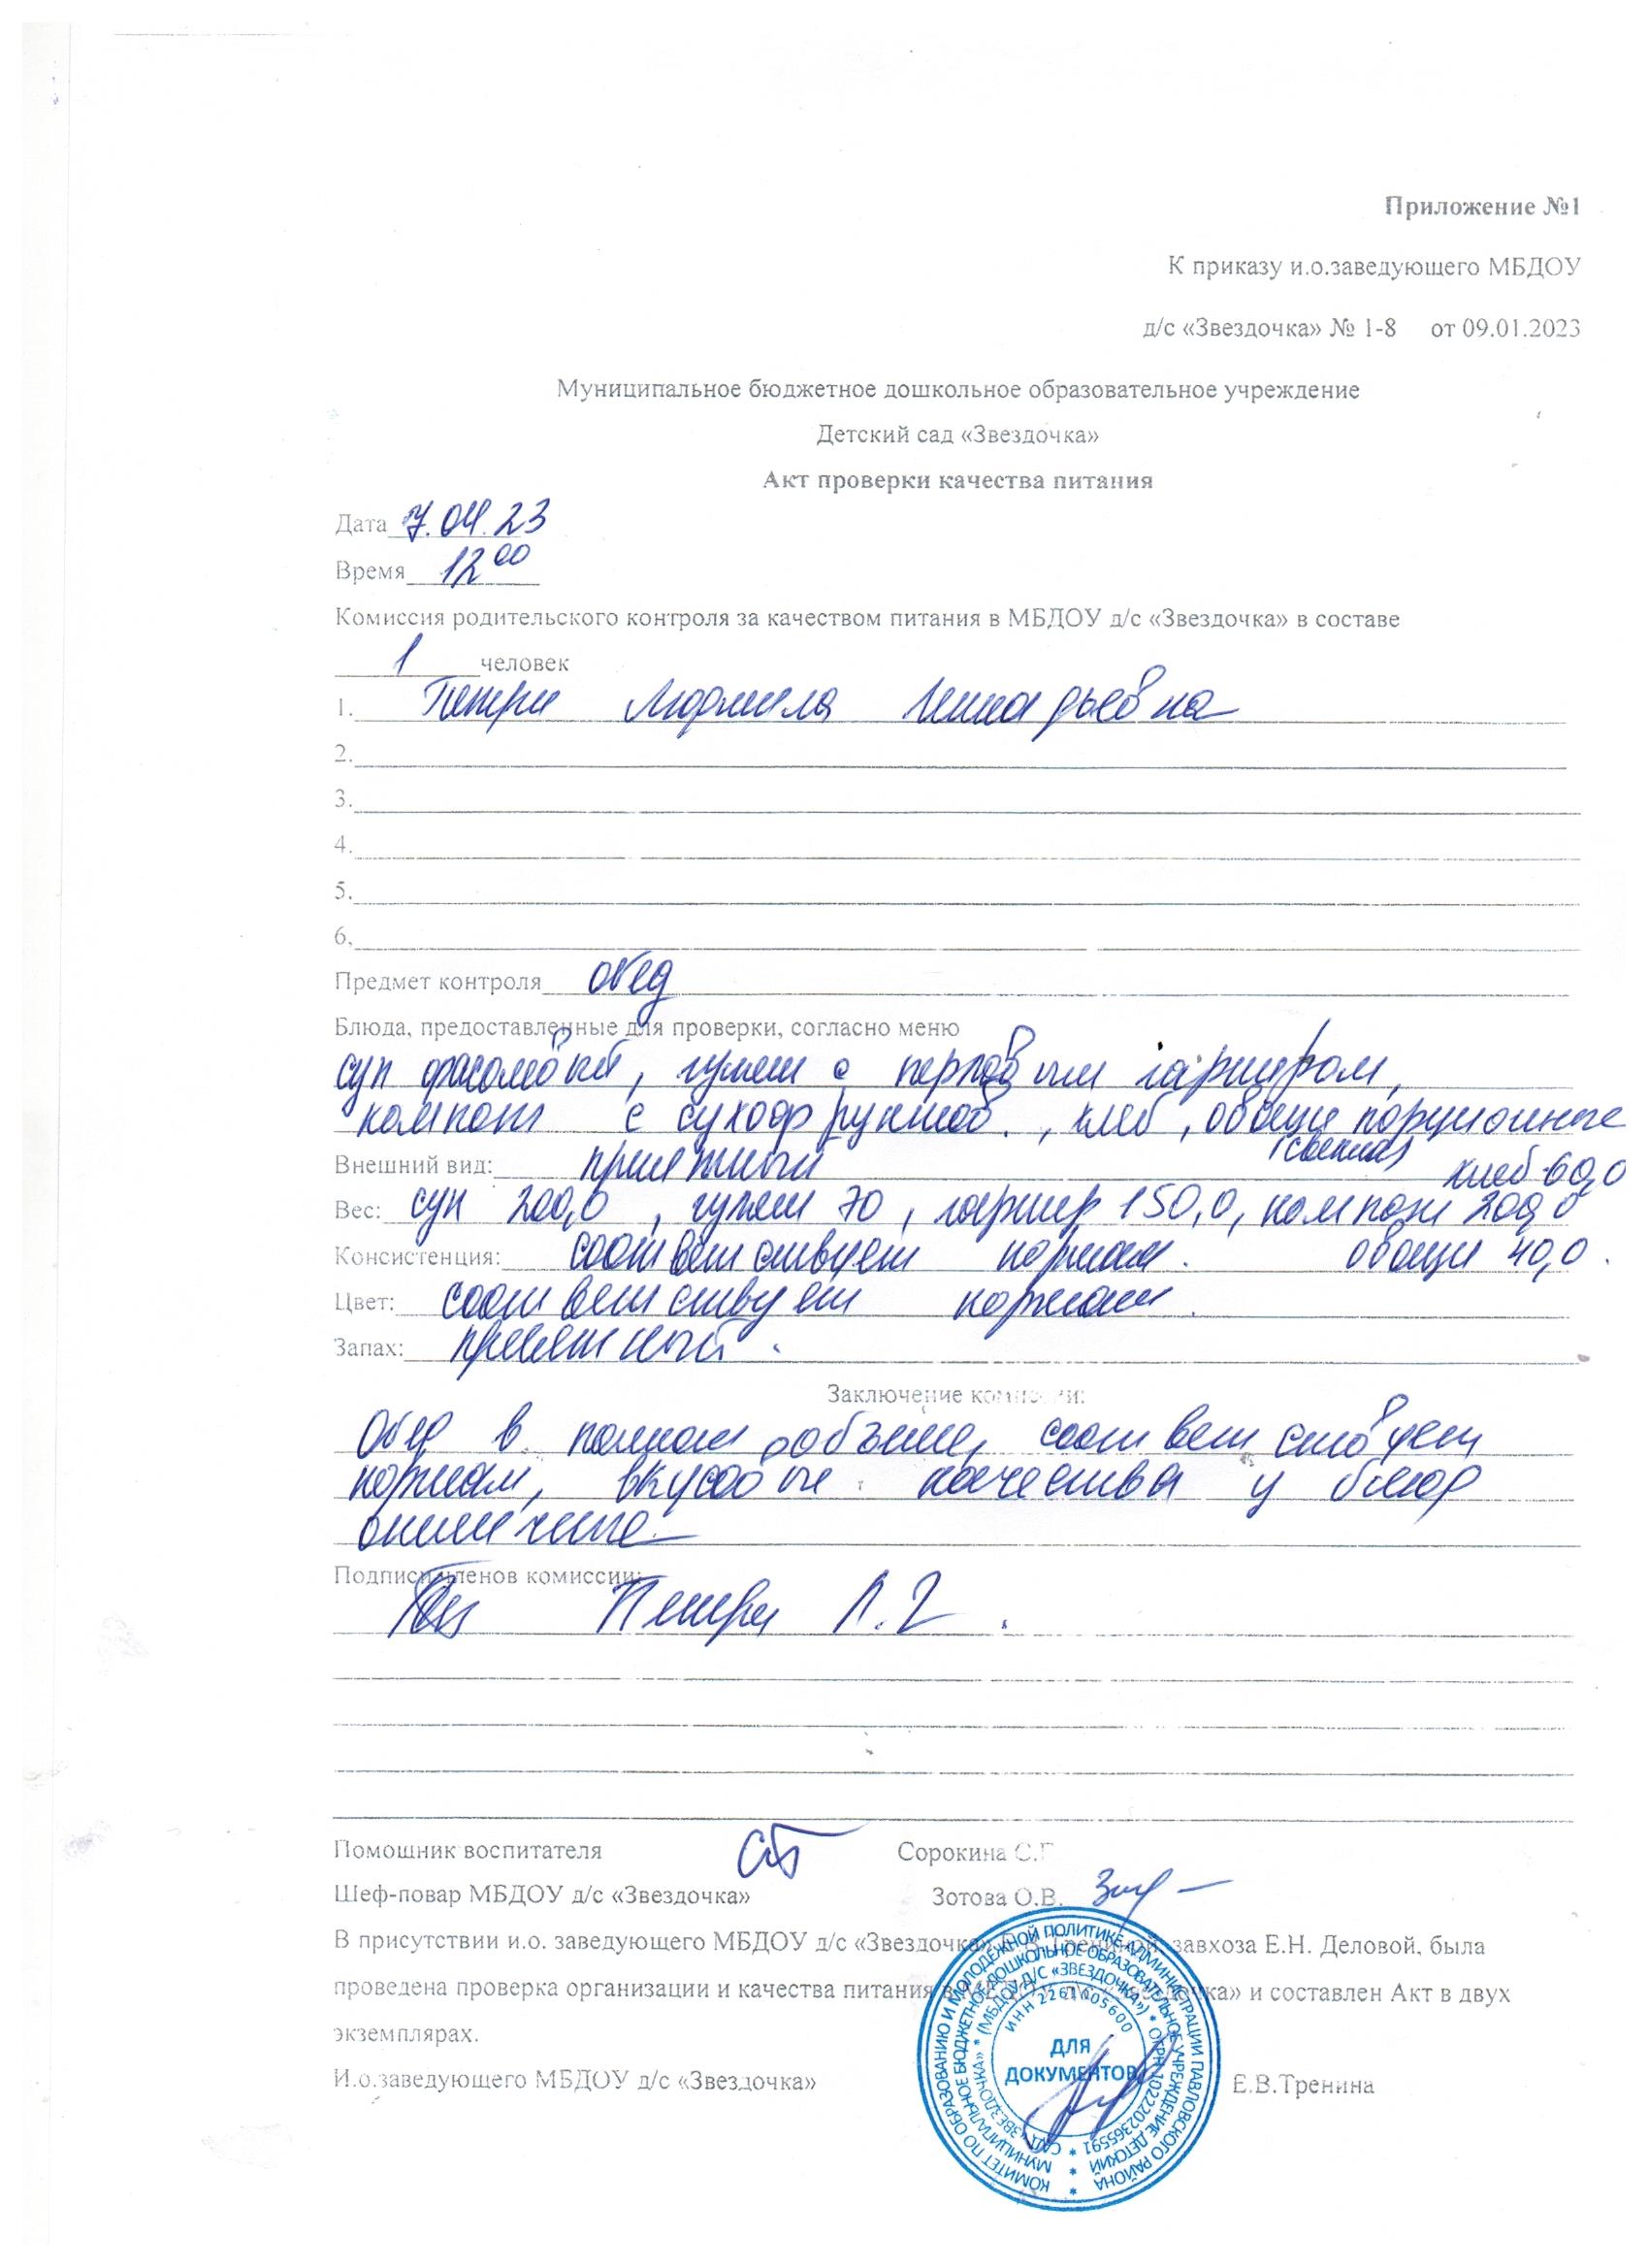 Приложение №1
К приказу и.о.заведующего МБДОУ
д/с «Звездочка» № 1-8 от 09.01.2023
Муниципальное бюджетное дошкольное образовательное учреждение
Детский сад «Звездочка»
Акт проверки качества питания
Дата 7.04.23
Время 12 00
Комиссия родительского контроля за качеством питания в МБДОУ д/с «Звездочка» в составе
1 человек
1. Петри Людмила Геннадьевна
2.
3.
4.
5.
6.
Предмет контроля обед
Блюда, предоставленные для проверки, согласно меню
суп фасолевый, гуляш с перловым гарниром,
компот с сухофруктов., хлеб, овощи порционные
(свекла)
Внешний вид: приятный хлеб-60,0
Вес: суп 200,0, гуляш 70, гарнир 150,0, компот 200,0
Консистенция: соответствует нормам. овощи 40,0.
Цвет: соответствует нормам.
Запах: приятный.
Заключение комиссии:
Обед в полном объеме, соответствует
нормам, вкусовые качества у блюд
отличные
Подписи членов комиссии:
Петри Л.Г.
Помощник воспитателя Сорокина С.Г
Шеф-повар МБДОУ д/с «Звездочка» Зотова О.В.
В присутствии и.о. заведующего МБДОУ д/с «Звездочка» Е.В. Трениной, завхоза Е.Н. Деловой, была
проведена проверка организации и качества питания в МБДОУ д/с «Звездочка» и составлен Акт в двух
экземплярах.
И.о.заведующего МБДОУ д/с «Звездочка» Е.В.Тренина
КОМИТЕТ ПО ОБРАЗОВАНИЮ И МОЛОДЕЖНОЙ ПОЛИТИКЕ АДМИНИСТРАЦИИ ПАВЛОВСКОГО РАЙОНА
МУНИЦИПАЛЬНОЕ БЮДЖЕТНОЕ ДОШКОЛЬНОЕ ОБРАЗОВАТЕЛЬНОЕ УЧРЕЖДЕНИЕ ДЕТСКИЙ
САД «ЗВЕЗДОЧКА» * (МБДОУ Д/С «ЗВЕЗДОЧКА») * ОГРН 1022202365591 *
ИНН 2261005600
ДЛЯ
ДОКУМЕНТОВ